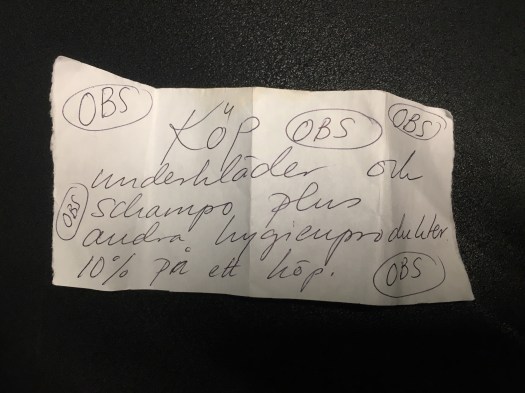 OBS
Köp OBS OBS
underkläder och
OBS schampo plus
andra hygienprodukter
10% på ett köp.
OBS